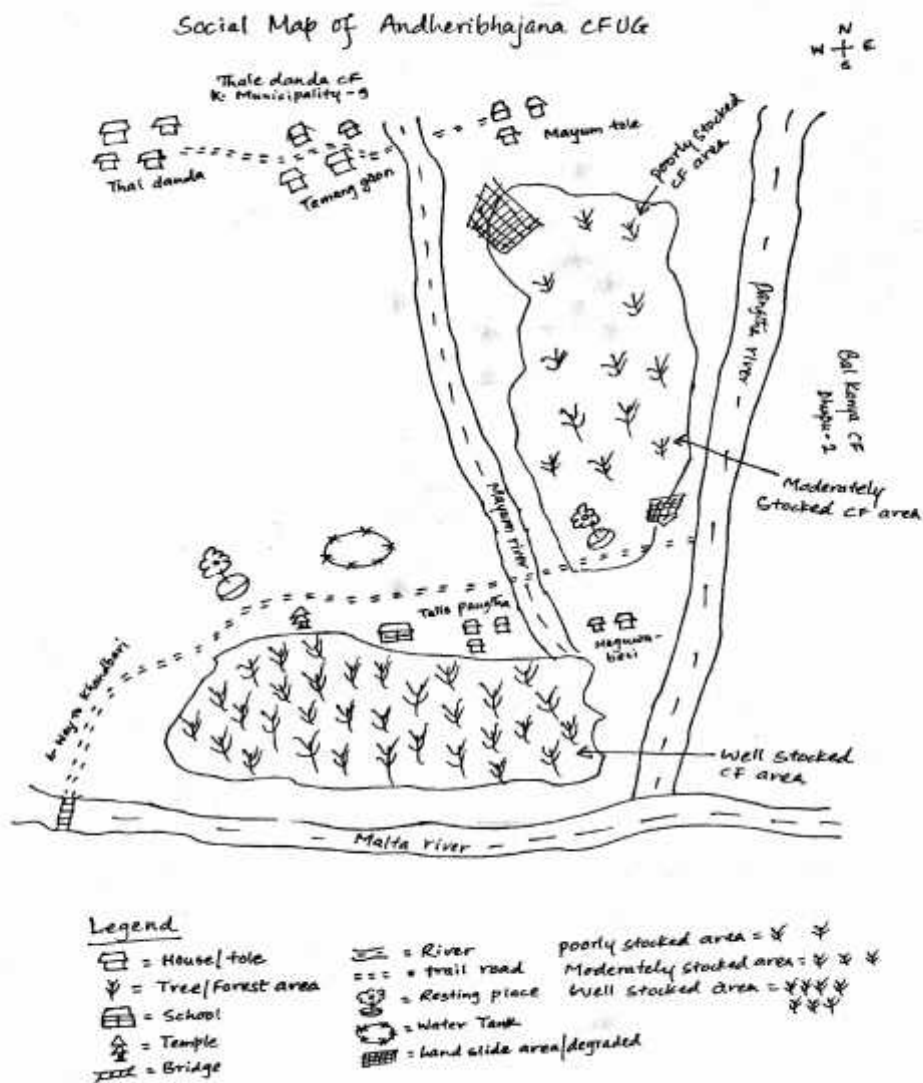 Social Map of Andheribhajana CFUG
N
W E
S
Thale danda CF
K. Municipality-9
Mayum tole
Thal danda
Tamang gaon
poorly stocked
CF area
river
Bal Kanya CF
Moderately
Stocked CF area
Mayum river
Talla
way to Khandbari
Well Stocked
CF area
Malta river
Legend
= House/tole
= Tree/Forest area
= School
= Temple
= Bridge
= River
= trail road
= Resting place
= Water Tank
= Land slide area/degraded
poorly stocked area =
Moderately stocked area =
Well stocked area =